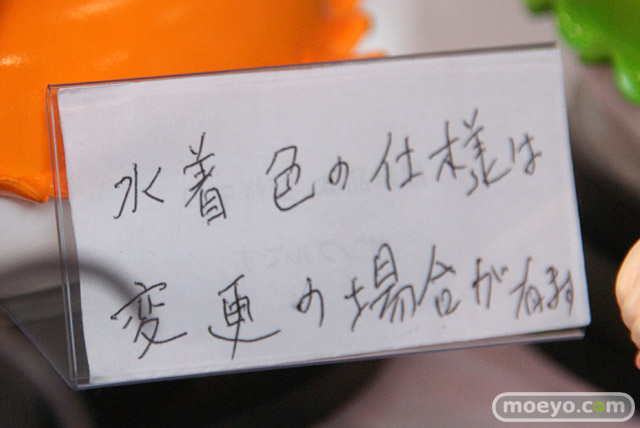 水着色の仕様は
変更の場合が有ます
moeyo.com